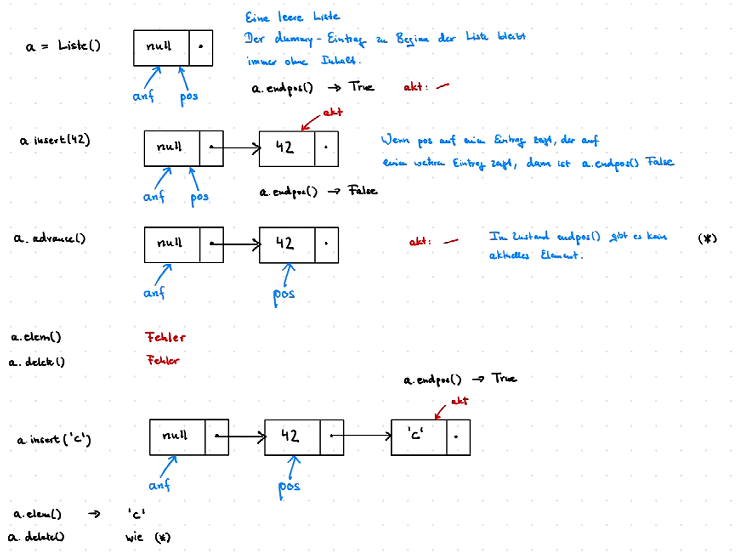 Eine leere Liste
a = Liste()
null
Der dummy-Eintrag zu Beginn der Liste bleibt
immer ohne Inhalt.
anf
pos
a.endpos() → True
akt: –
akt
a insert(42)
null
42
Wenn pos auf einen Eintrag zeigt, der auf
einen wahren Eintrag zeigt, dann ist a.endpos() False
anf
pos
a.endpos() → False
a. advance()
null
42
akt: –
Im Zustand endpos() gibt es kein
aktuelles Element.
(*)
anf
pos
a.elem()
Fehler
a. delete()
Fehler
a.endpos() → True
akt
a insert('c')
null
42
'c'
anf
pos
a.elem() → 'c'
a. delete() wie (*)